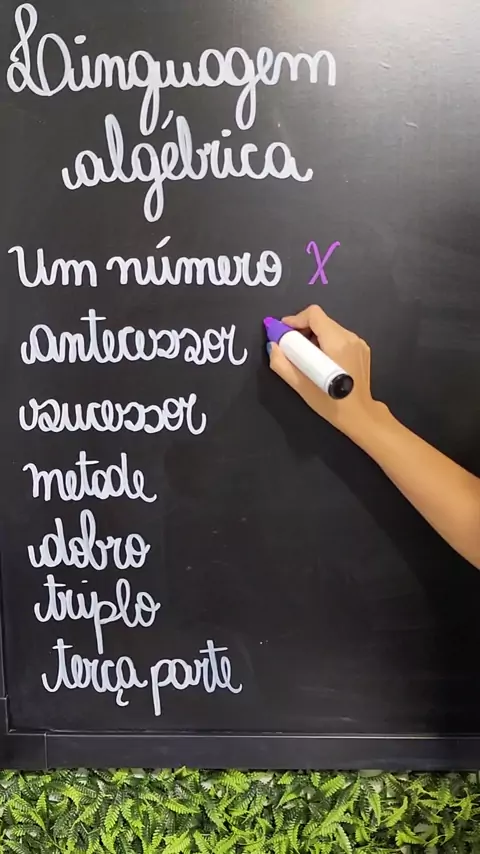 Linguagem
algébrica
Um número X
antecessor
sucessor
metade
dobro
triplo
terça parte